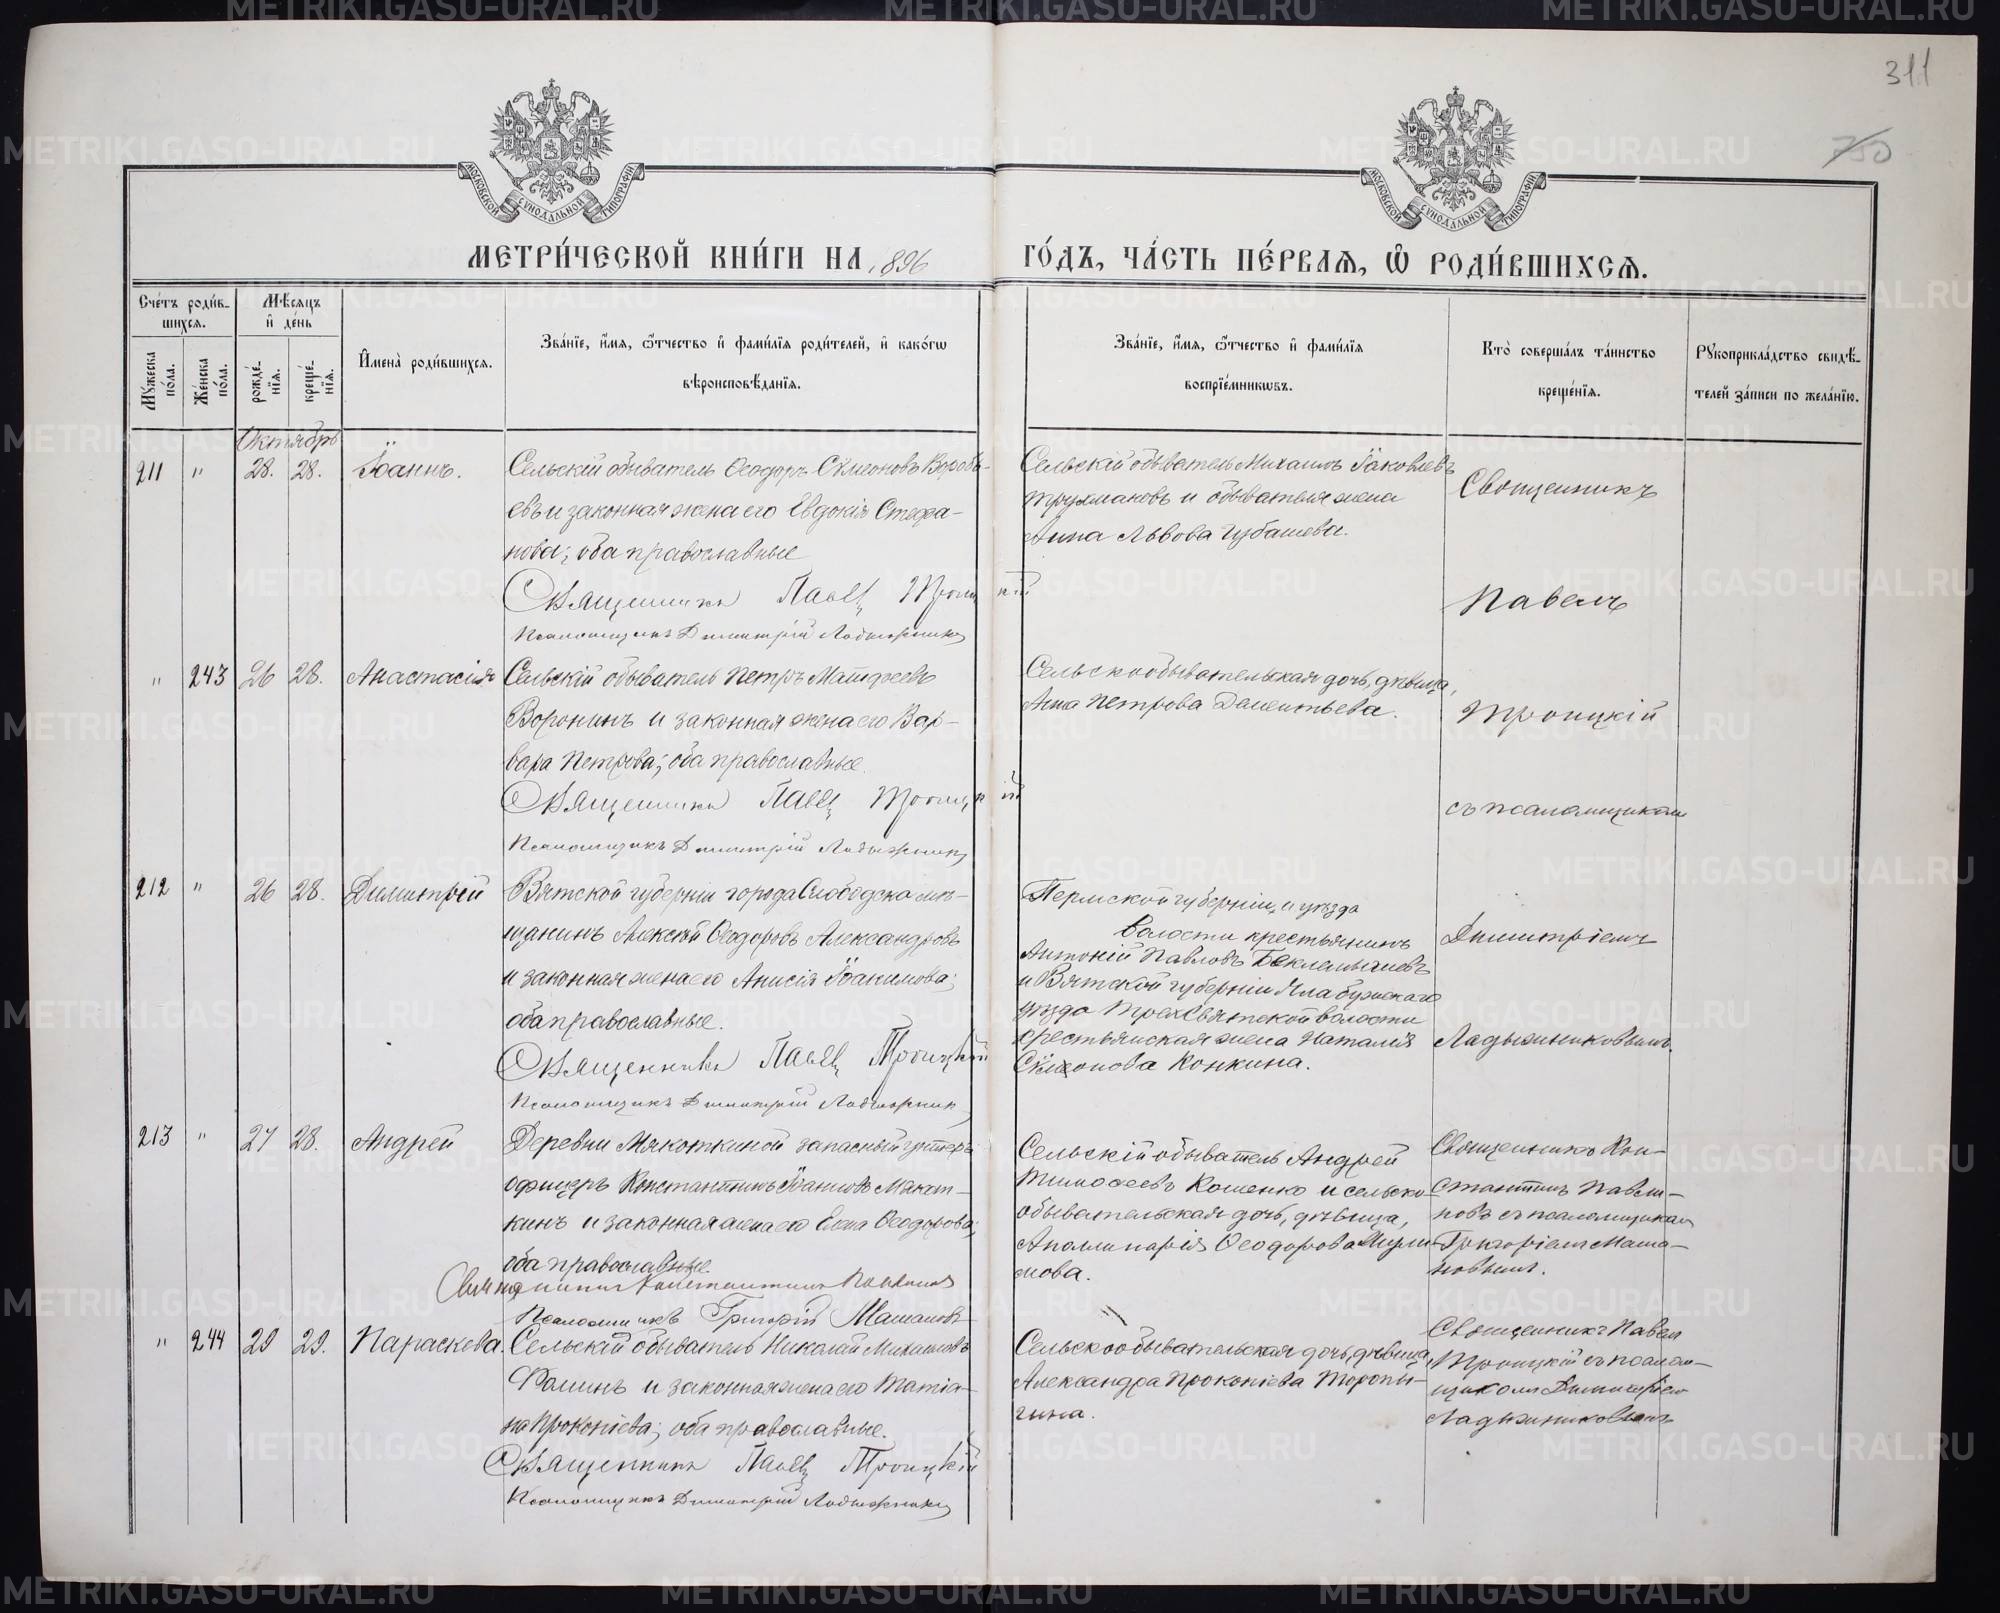 311
750
МОСКОВСКОЙ СУНОДАЛЬНОЙ ТИПОГРАФІИ
МОСКОВСКОЙ СУНОДАЛЬНОЙ ТИПОГРАФІИ
МЕТРИ́ЧЕСКОЙ КНИ́ГИ НА 1896
ГО́ДЪ, ЧА́СТЬ ПЕ́РВАЯ, Ѡ҆ РОДИ́ВШИХСЯ.
Сче́тъ роди́в-
шихся.
Мѣ́сяцъ
и҆ де́нь
Мꙋ́жеска
по́ла.
Же́нска
по́ла.
рожде́-
нїя.
креще́-
нїя.
И҆мена̀ роди́вшихся.
Зва́нїе, и҆́мя, ѻ҆́тчество и҆ фами́лїя роди́телей, и҆ како́гѡ
вѣроисповѣ́данїя.
Зва́нїе, и҆́мя, ѻ҆́тчество и҆ фами́лїя
воспрїе́мникѡвъ.
Кто̀ соверша́лъ та́инство
креще́нїя.
Рꙋкоприкла́дство свидѣ́-
телей за́писи по жела́нїю.
Октябрь
211 " 28. 28. Іоаннъ.
Сельскій обыватель Ѳеодоръ Сѵмеоновъ Воробь-
евъ и законная жена его Евдокія Стефа-
нова; оба православные
Священникъ Павелъ Троицкій
Псаломщикъ Димитрій Ладыжник
Сельскій обыватель Михаилъ Іаковлевъ
Трухмановъ и обывателя жена
Анна Львова Губашева.
Священникъ
Павелъ
" 243 26 28. Анастасія
Сельскій обыватель Петръ Матѳеевъ
Воронинъ и законная жена его Вар-
вара Петрова; оба православные.
Священникъ Павелъ Троицкій
Псаломщикъ Димитрій Ладыжник
Сельскообывательская дочь, дѣвица,
Анна Петрова Дементьева.
Троицкій
съ псаломщикомъ
212 " 26 28. Димитрій
Вятской губерніи города Слободска мѣ-
щанинъ Алексій Ѳеодоровъ Александровъ
и законная жена его Анисія Іоакимова;
оба православные.
Священникъ Павелъ Троицкій
Псаломщикъ Димитрій Ладыжник
Пермской губерніи и уѣзда
волости крестьянинъ
Антоній Павловъ Беклемышевъ
и Вятской губерніи Елабужскаго
уѣзда Трехсвятской волости
крестьянская жена Наталія
Сѵмеонова Конкина.
Димитріемъ
Ладыжниковымъ.
213 " 27 28. Андрей
Деревни Мякоткиной запасный унтеръ
офицеръ Константинъ Іоанновъ Мякот-
кинъ и законная жена его Елена Ѳеодорова;
оба православные.
Священникъ Константинъ
Псаломщикъ Григорій Машановъ
Сельскій обыватель Андрей
Тимоѳеевъ Кошенко и сельско-
обывательская дочь, дѣвица,
Аполлинарія Ѳеодорова
нова.
Священникъ Кон-
стантинъ Павли-
новъ съ псаломщикомъ
Григоріемъ Маша-
новымъ.
" 244 29 29. Параскева.
Сельскій обыватель Николай Михаиловъ
Ѳоминъ и законная жена его Татіа-
на Прокопіева; оба православные.
Священникъ Павелъ Троицкій
Псаломщикъ Димитрій Ладыжник
Сельскообывательская дочь, дѣвица,
Александра Прокопіева Торопы-
гина.
Священникъ Павелъ
Троицкій съ псалом-
щикомъ Димитріемъ
Ладыжниковымъ